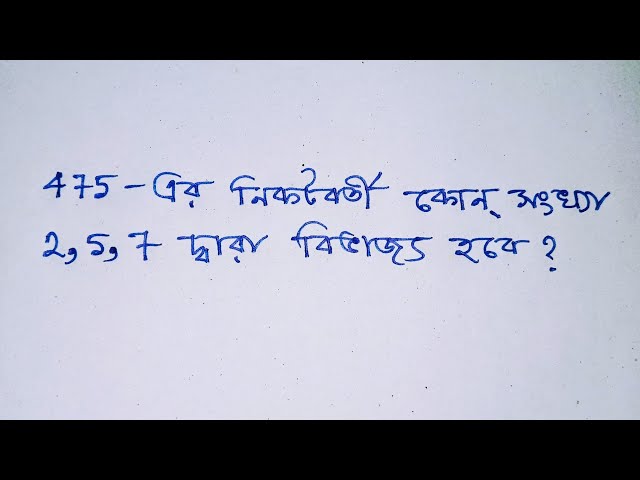 475 - এর নিকটবর্তী কোন্ সংখ্যা
2, 5, 7 দ্বারা বিভাজ্য হবে ?